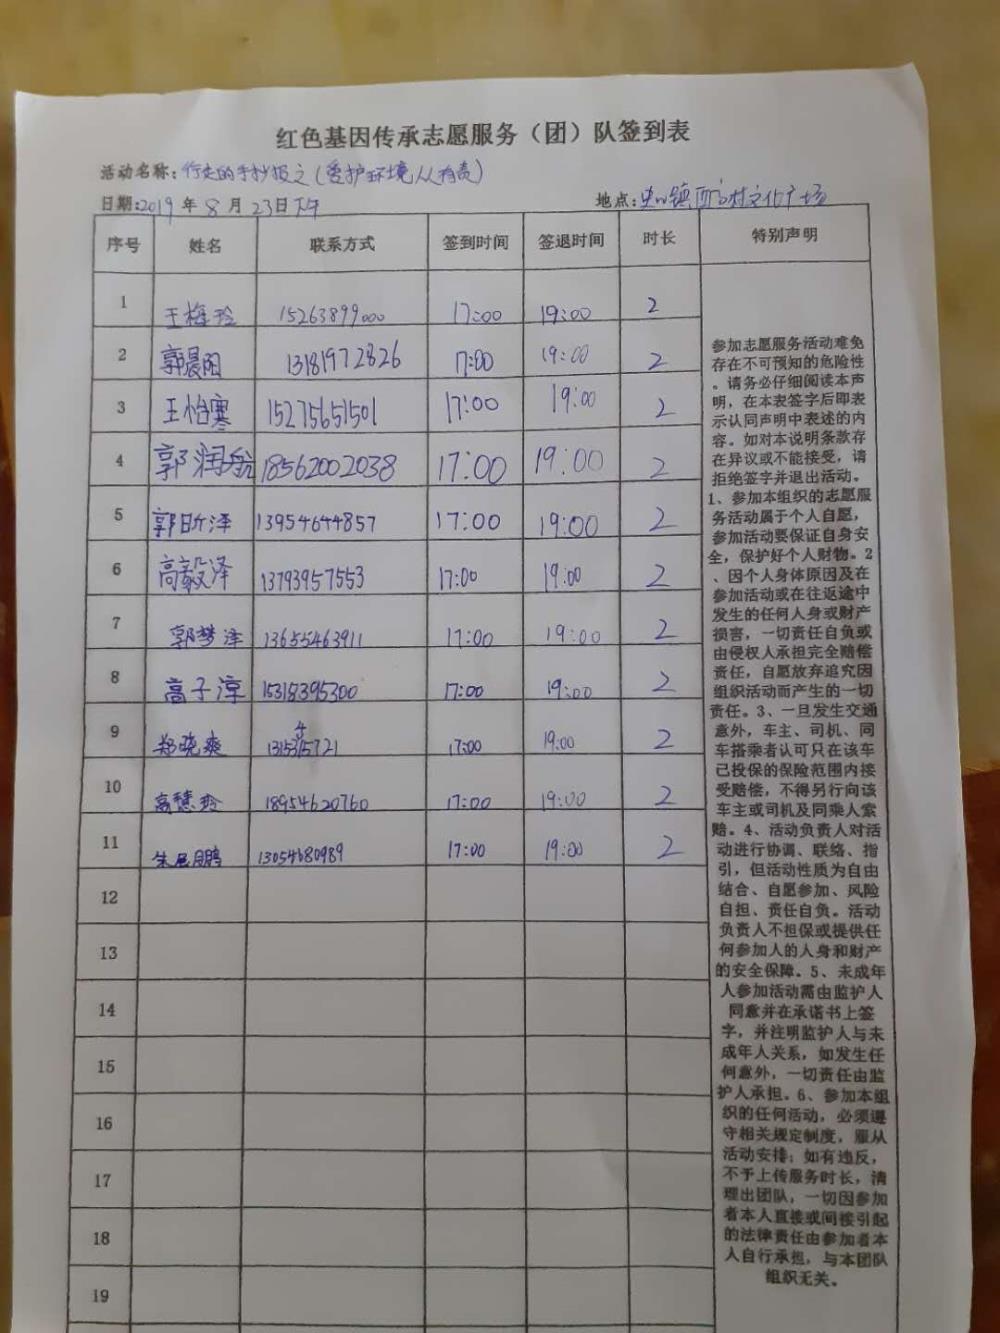 红色基因传承志愿服务（团）队签到表
活动名称：行走的手抄报之（爱护环境人人有责）
日期：2019年8月23日下午 地点：史口镇西高村文化广场
序号 姓名 联系方式 签到时间 签退时间 时长 特别声明
1 王梅玲 15263899000 17:00 19:00 2
2 郭晨阳 13181972826 17:00 19:00 2
3 王怡寒 15275651501 17:00 19:00 2
4 郭润航 18562002038 17:00 19:00 2
5 郭昕泽 13954644857 17:00 19:00 2
6 高毅泽 13793957553 17:00 19:00 2
7 郭梦泽 13655463911 17:00 19:00 2
8 高子淳 15318395300 17:00 19:00 2
9 郑晓爽 17:00 19:00 2
10 高慧玲 18954620760 17:00 19:00 2
11 朱展鹏 13054680989 17:00 19:00 2
12
13
14
15
16
17
18
19
参加志愿服务活动难免
存在不可预知的危险性
。请务必仔细阅读本声
明，在本表签字后即表
示认同声明中表述的内
容。如对本说明条款存
在异议或不能接受，请
拒绝签字并退出活动。
1、参加本组织的志愿服
务活动属于个人自愿，
参加活动要保证自身安
全，保护好个人财物。2
、因个人身体原因及在
参加活动或在往返途中
发生的任何人身或财产
损害，一切责任自负或
由侵权人承担完全赔偿
责任，自愿放弃追究因
组织活动而产生的一切
责任。3、一旦发生交通
意外，车主、司机、同
车搭乘者认可只在该车
已投保的保险范围内接
受赔偿，不得另行向该
车主或司机及同乘人索
赔。4、活动负责人对活
动进行协调、联络、指
引，但活动性质为自由
结合、自愿参加、风险
自担、责任自负。活动
负责人不担保或提供任
何参加人的人身和财产
的安全保障。5、未成年
人参加活动需由监护人
同意并在承诺书上签
字，并注明监护人与未
成年人关系，如发生任
何意外，一切责任由监
护人承担。6、参加本组
织的任何活动，必须遵
守相关规定制度，服从
活动安排；如有违反，
不予上传服务时长，清
理出团队，一切因参加
者本人直接或间接引起
的法律责任由参加者本
人自行承担，与本团队
组织无关。